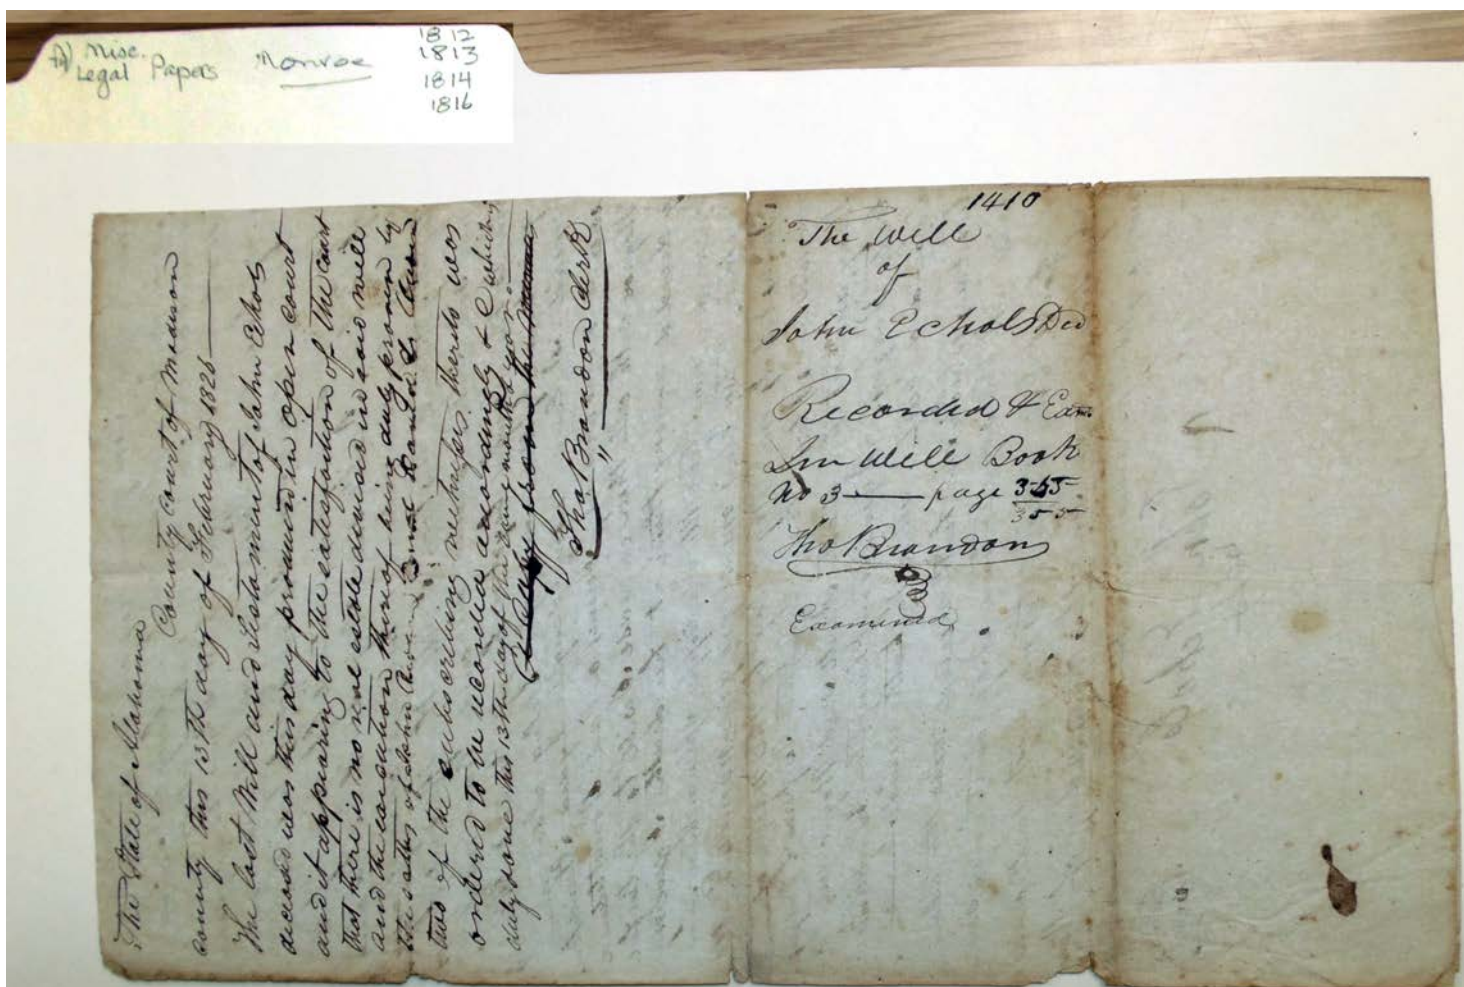 Misc.
Legal Papers Monroe
1812
1813
1814
1816
The State of Alabama
County Court of Madison
County this 13th day of February 1826
The last Will and Testament of John Echols
deceased was this day produced in open court
and it appearing to the satisfaction of the Court
that there is no real estate devised in said will
and the execution thereof being duly proven by
the oaths of John
two of the subscribing witnesses thereto was
ordered to be recorded accordingly & which is
duly done this 13th day of the same month & year
Tho Brandon Clerk
1410
The Will
of
John Echols Decd
Recorded & Exam.
In Will Book
No 3 — page 355
355
Tho Brandon
Examined